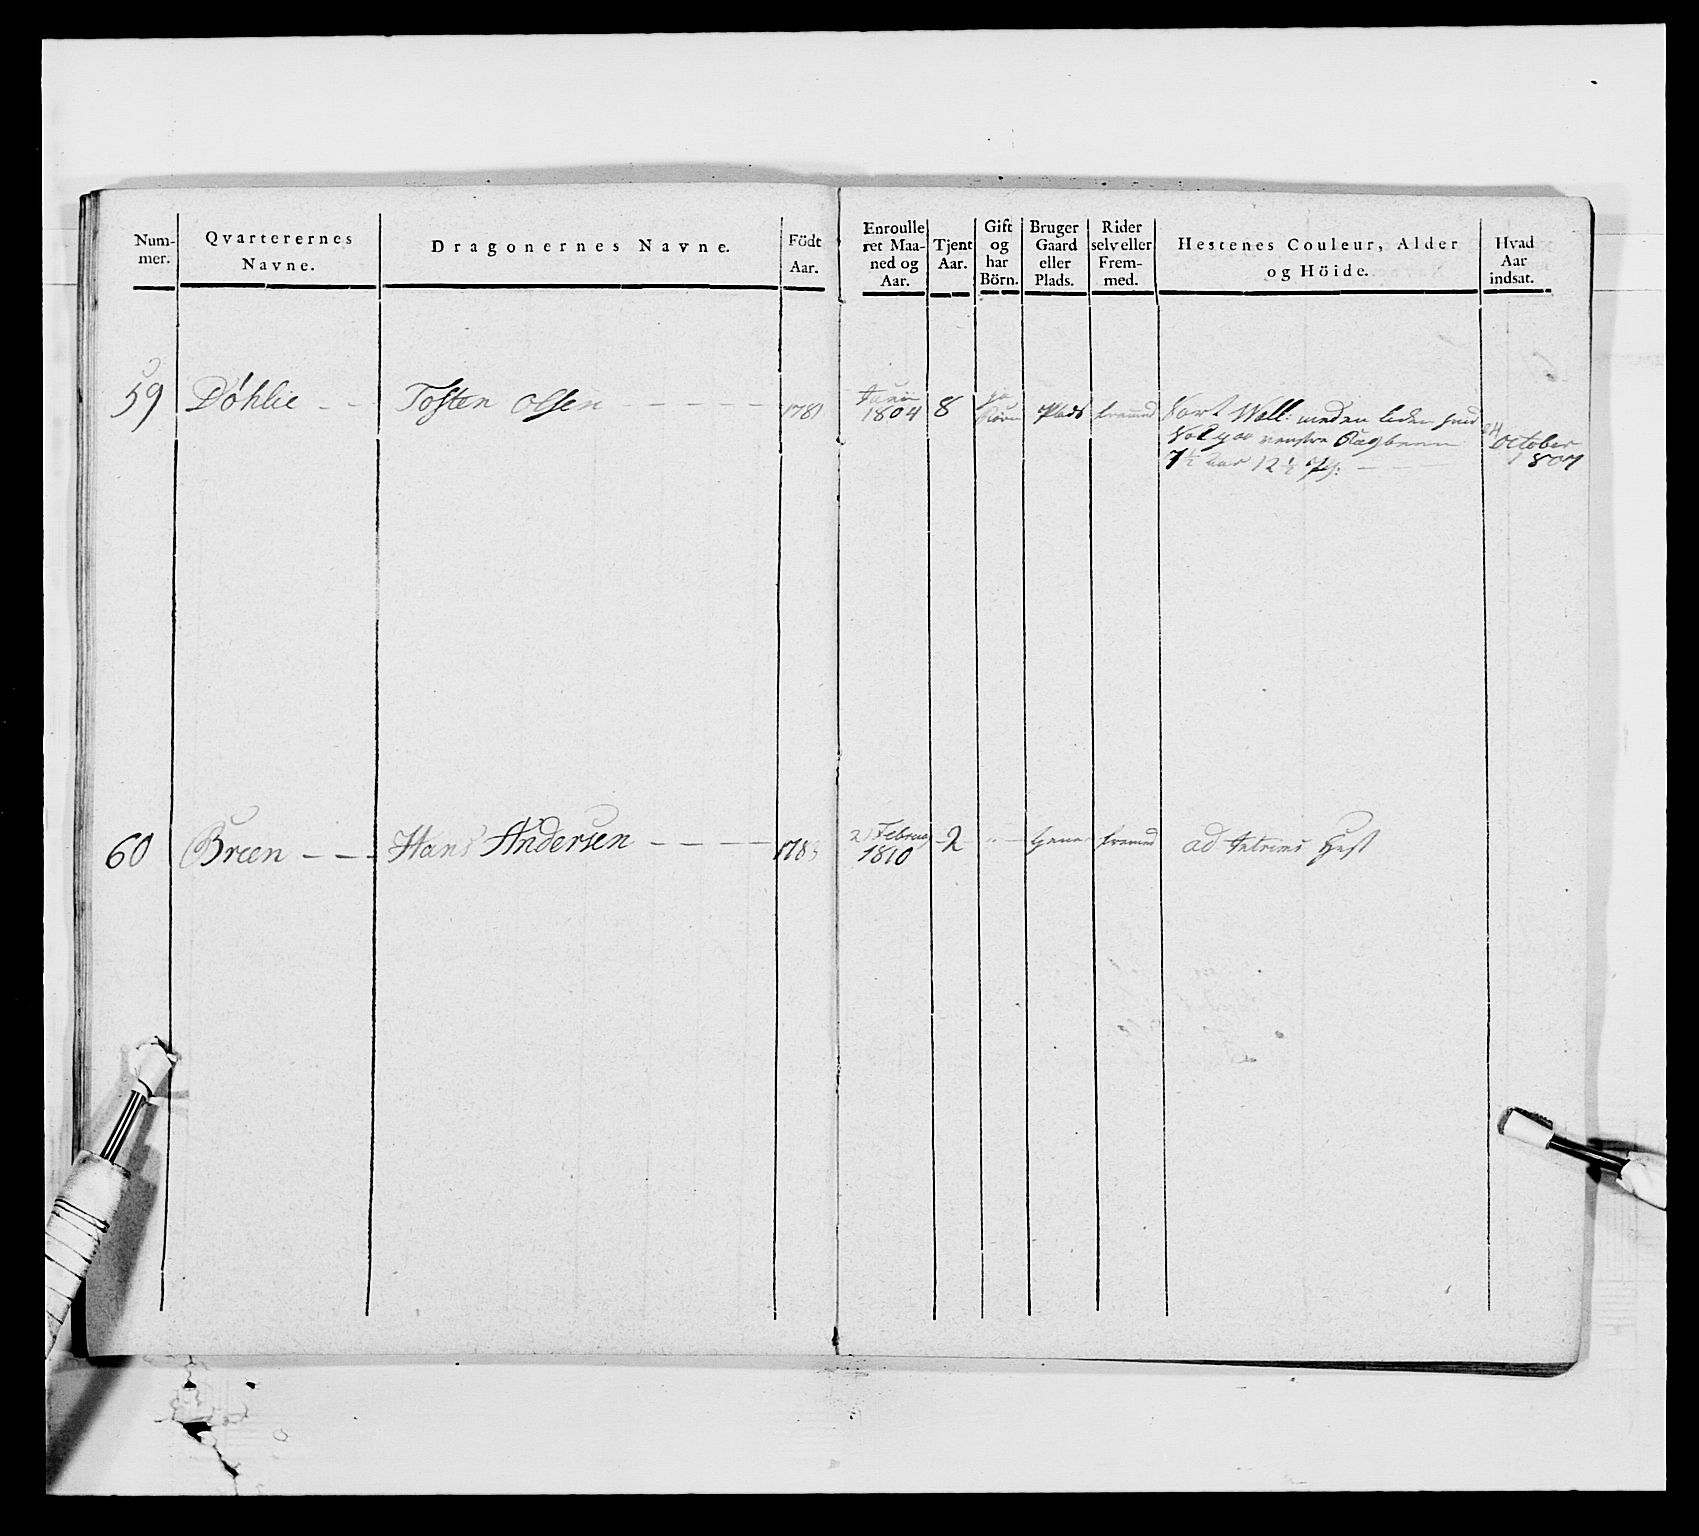 Num-
mer.
Qvarterernes
Navne.
Dragonernes Navne.
Födt
Aar.
Enroulle
ret Maa-
ned og
Aar.
Tjent
Aar.
Gift
og
har
Börn.
Bruger
Gaard
eller
Plads.
Rider
selv eller
Frem-
med.
Hestenes Couleur, Alder
og Höide.
Hvad
Aar
indsat.
59 Döhlie Tosten Olsen 1781
1804 8 Plads fremed
Sort Wall. uden liden hvid
venstre Bagbeen
7½ Aar 12½
24
October
1807
60 Breen Hans Andersen 178
Februar
1810 2 fremed ad Interims Hest